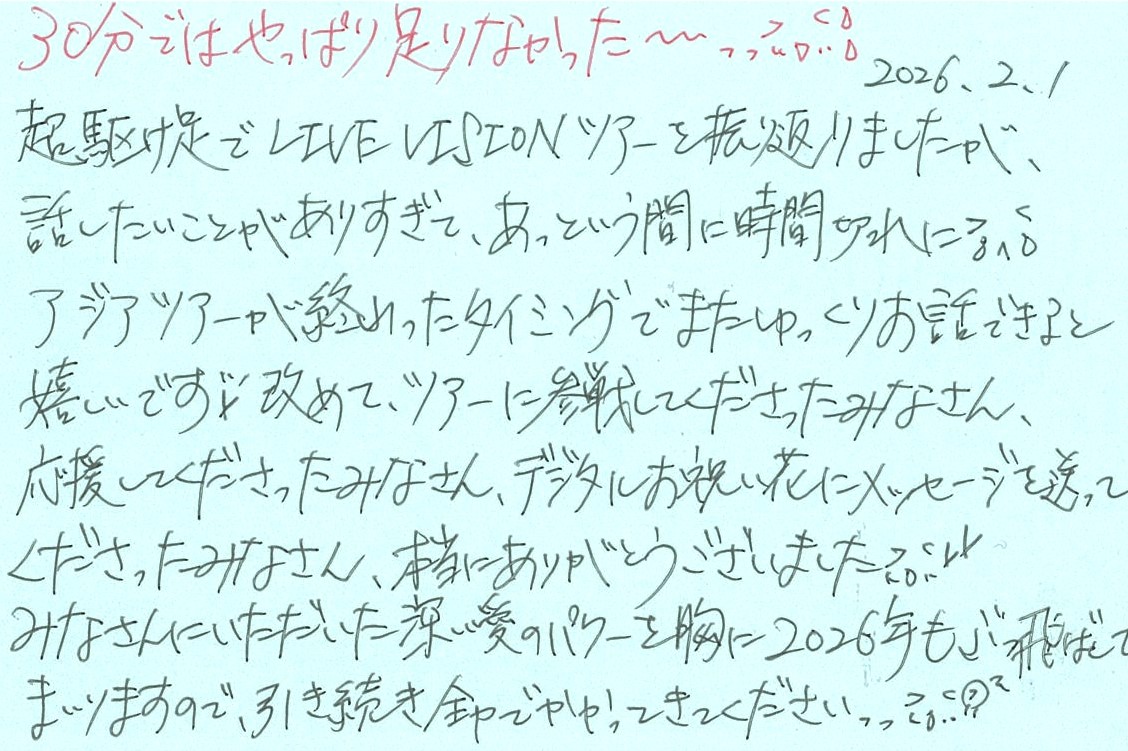 30分ではやっぱり足りなかった〜〜っっ
2026.2.1
超駆け足でLIVE VISIONツアーを振り返りましたが、
話したいことがありすぎて、あっという間に時間切れに
アジアツアーが終わったタイミングでまたゆっくりお話できると
嬉しいです 改めて、ツアーに参戦してくださったみなさん、
応援してくださったみなさん、デジタルお祝い花にメッセージを送って
くださったみなさん、本当にありがとうございました
みなさんにいただいた深い愛のパワーを胸に2026年もぶっ飛ばして
まいりますので、引き続き全力でかかってきてくださいっっ